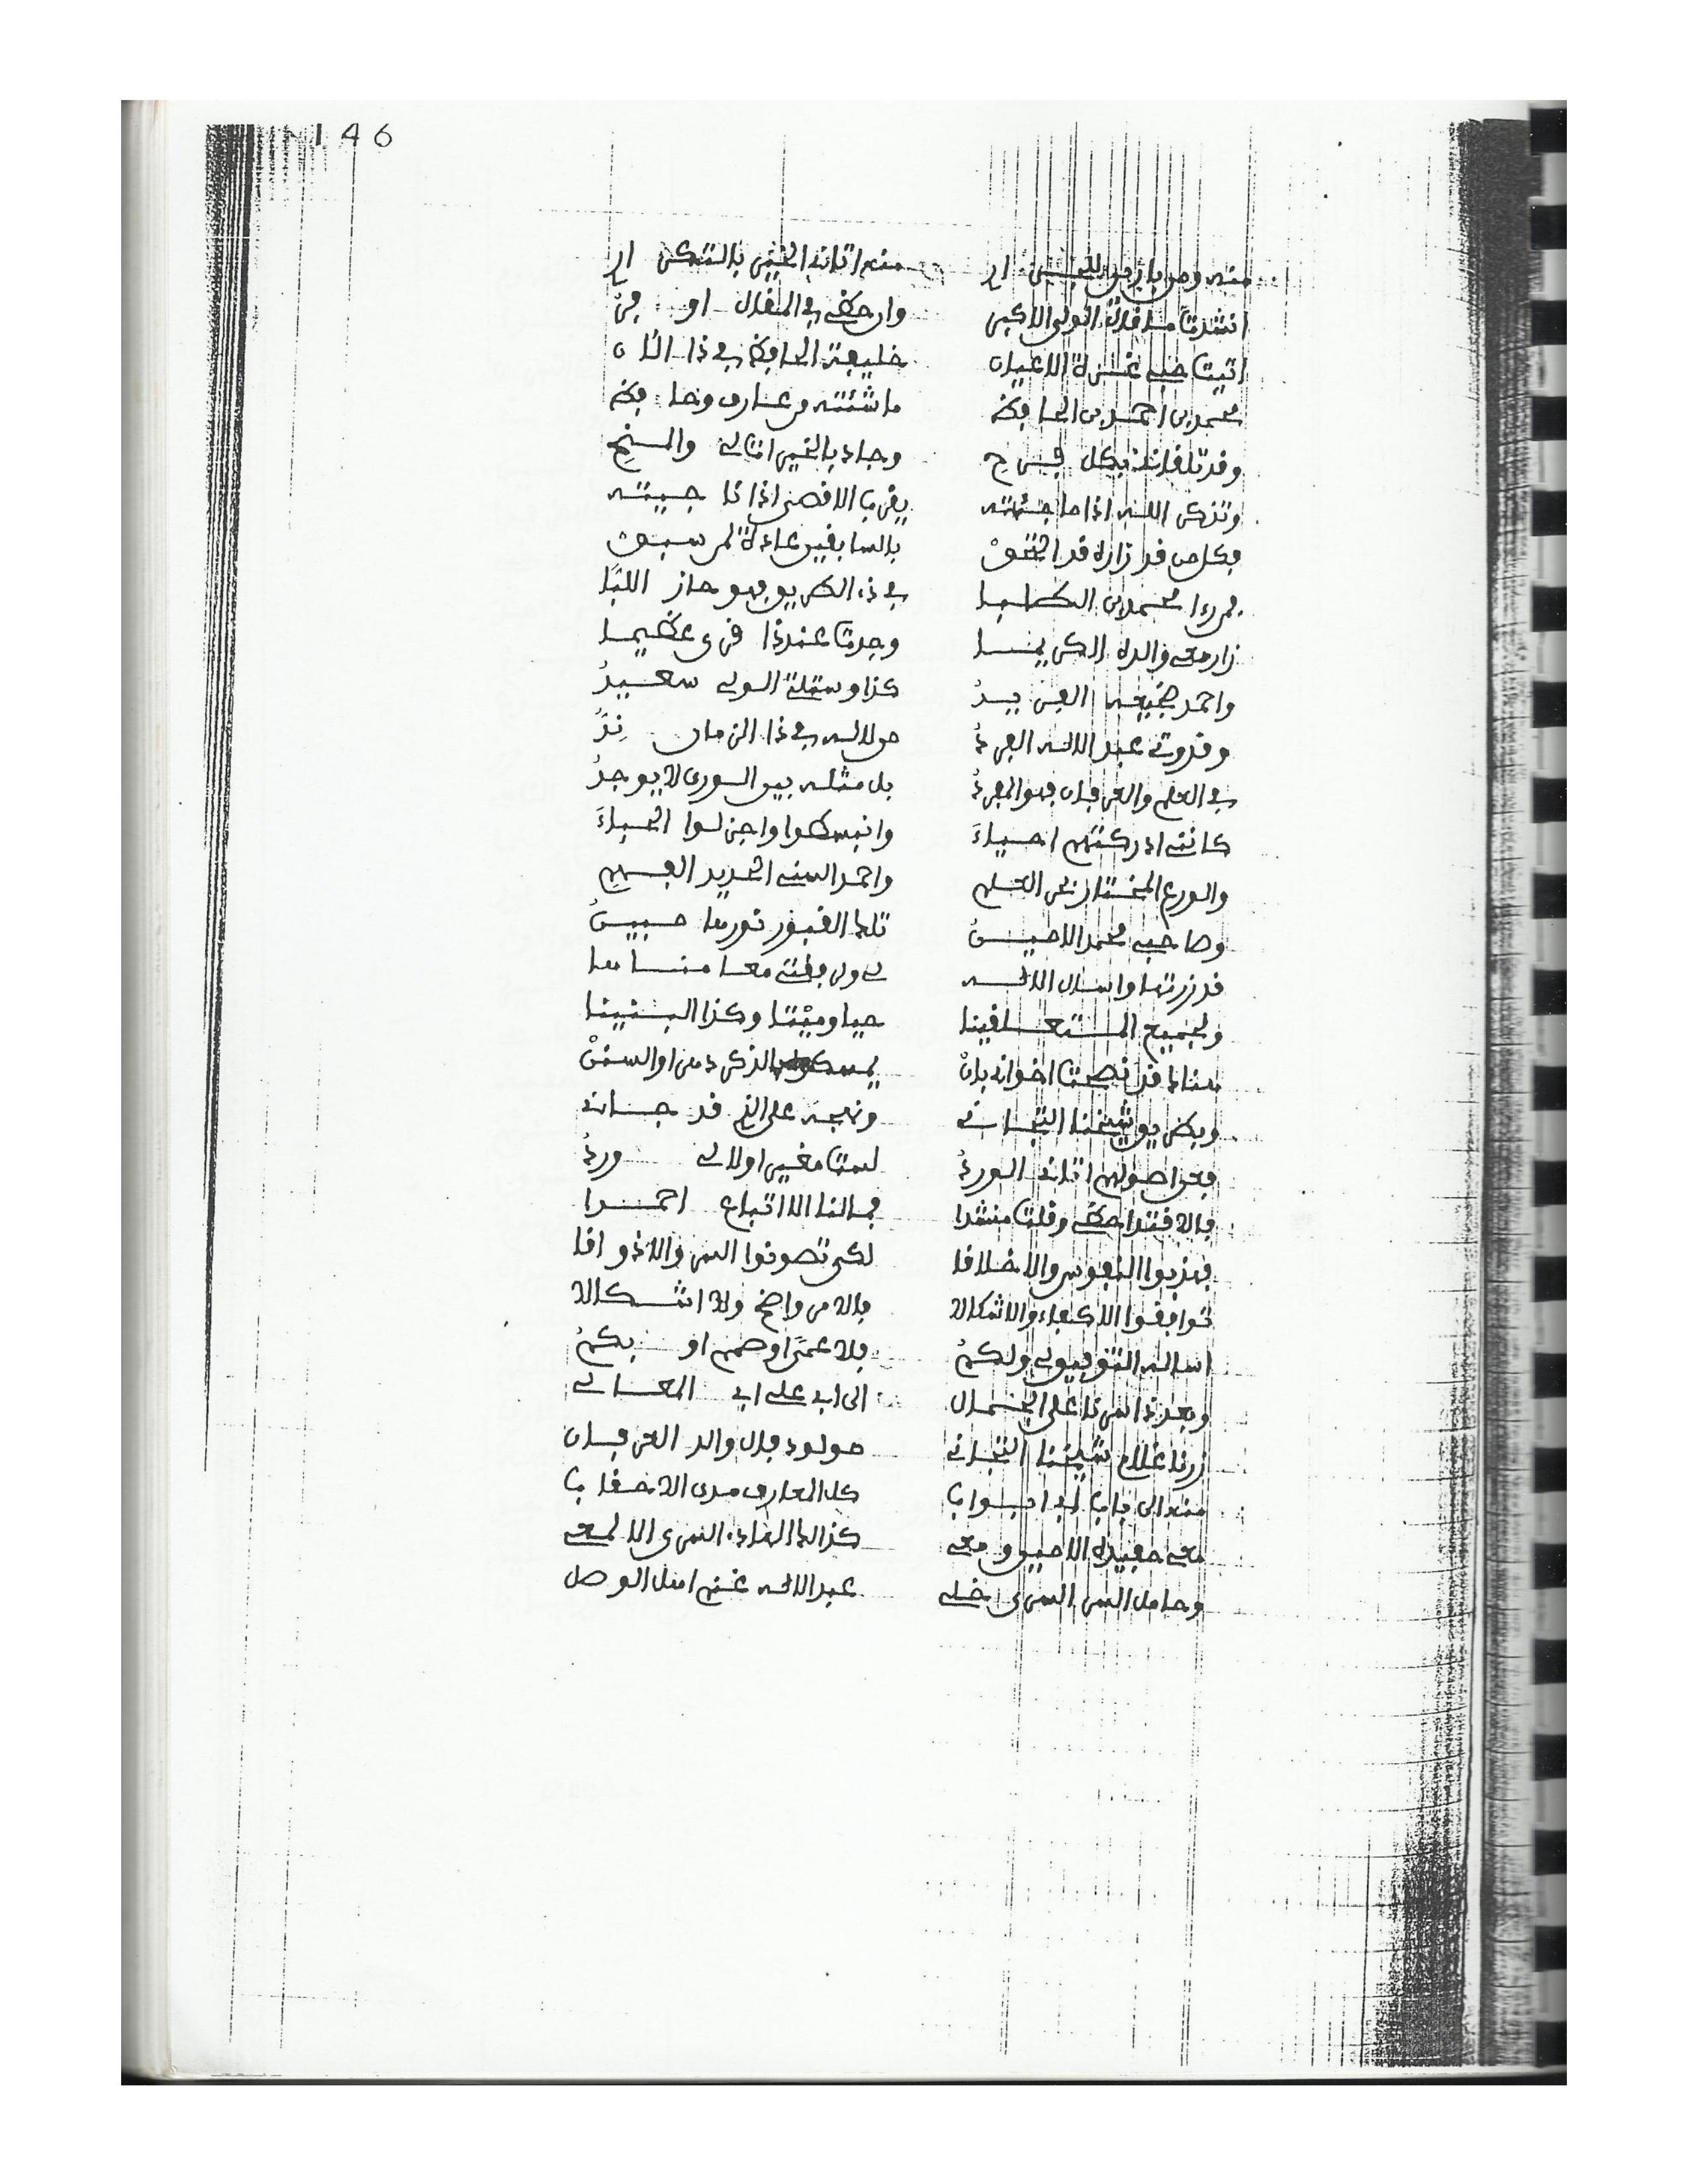 146
منه ومن بازمن للبخار ار منه اتانى الخير بالتكر ار
انشدت ما قال الولى الاكبر وان حكى فى المقال او فر
اتيت خير غرة الاعيان خليفة الحافظ فى ذا الان
محمد بن احمد بن الحافظ ما شئته من عارف وحافظ
وقد تلقانى بكل فرح وجاد بالخير اتى لى والمنح
وتذكر الله اذا ما جئته يقرب الاقصى اذا نا جيته
فكل من قد زاره قد التحق بالسابقين عادة لمن سبق
محمد بن الطلبا فى ذى الطريق فهو حاز اللبا
زار معى والده الكريما وجدت عنده قرى عظيما
واحمد ضجيعه الفريد كذا وسيلة الولى سعيد
وقدوتى عبد الاله الفرد من لاله فى ذا الزمان ند
فى العلم والعرفان فهو المفرد بل مثله بين الورى لا يوجد
كاننى ادركتهم احياء وانبسطوا واجزلوا الحباء
والورع المختار نجل العلم واحمد السنى الحديد الفهم
وصاحبى محمد الامين تلك القبور نورها مبين
قد زرتها واسال الاله لى ولرفقتى معا مناها
ولجميع المتعلقينا حيا وميتا وكذا البنينا
هناك قد نصحت اخوانى بان يمسكوا بالذكر دهرا والسنن
وبطريق شيخنا التجانى ونهجه على الذى قد جانى
فعن اصولهم اتانى الورد لست مغيرا ولا لى ورد
بالاقتدا حظى وقلت منشدا فما لنا الا اتباع احمدا
فهذبوا النفوس والاخلاقا لكى تصونوا السر والاذواقا
توافقوا الاكفاء والاشكالا فالامر واضح ولا اشكالا
اساله التوفيق لى ولكم فلا عمى او صمم او بكم
وبعد ذا سرنا على الجمال الى ابى على ابى المعالى
زرنا غلام شيخنا التجانى مولود فال والد العرفان
منه الى باب له ابواب كل المعارف مدى الاحقاب
معى حفيده الامين ومعى كذلك الهادى السرى الالمعى
وحامل السر السرى خلى عبد الاله غنم اهل الوصل